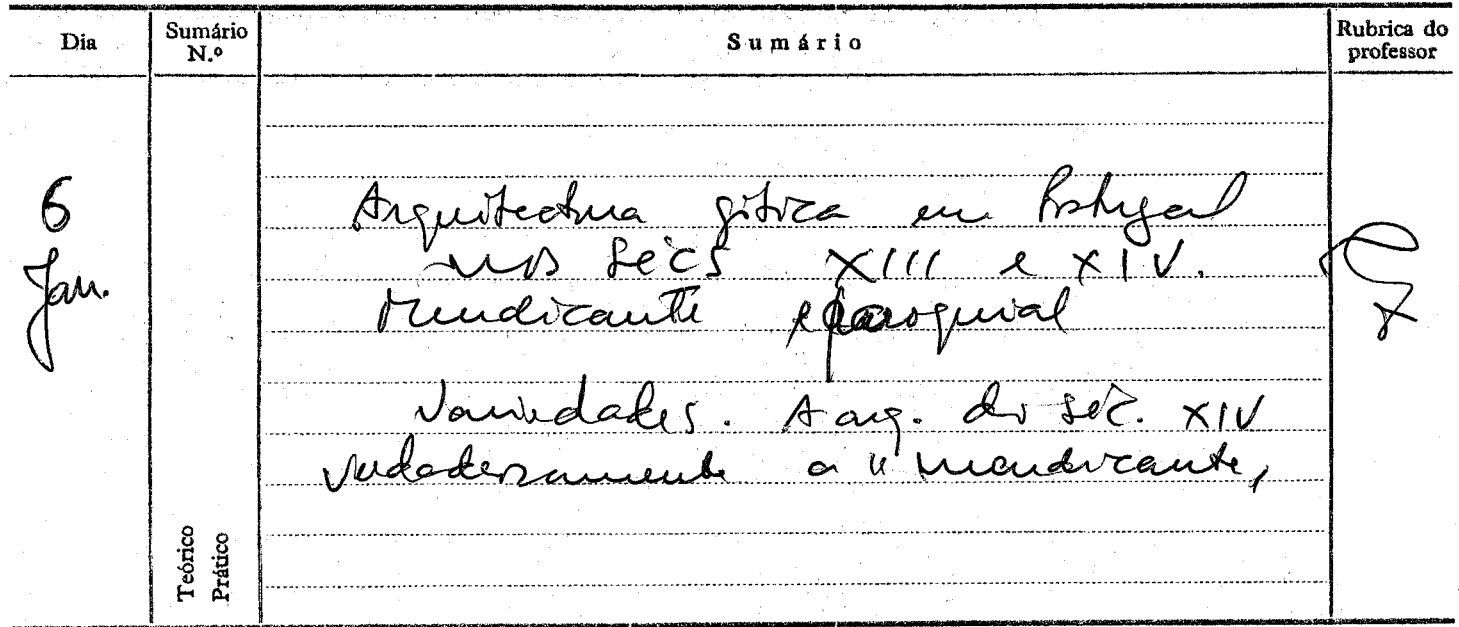 Dia
Sumário N.º
Sumário
Rubrica do professor
6 Jan.
Arquitectura gótica em Portugal
nos sécs XIII e XIV.
Mendicante e paroquial
Variedades. A arq. do séc. XIV
verdadeiramente a "mendicante,
Teórico
Prático